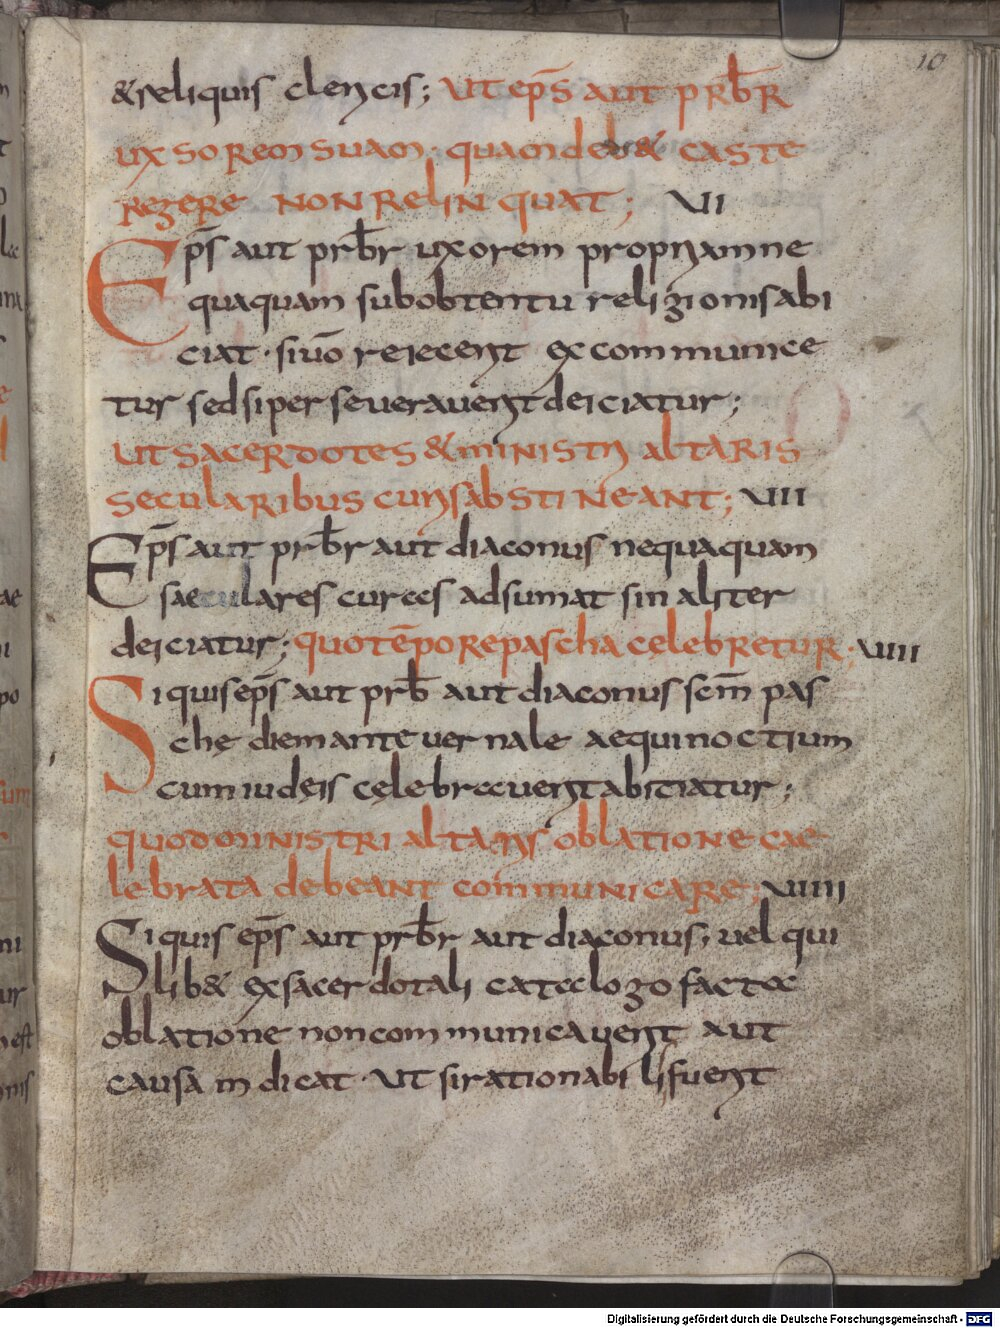 10
& reliquis clericis; ut ep̄s aut prb̄r
uxsorem suam quam deb& caste
regere non relinquat; VII
Ep̄s aut prb̄r uxorem propriam ne
quaquam sub obtentu religionis abi
ciat · si uō reiecerit excommunice
tur sed si perseueraverit deiciatur;
ut sacerdotes & ministri altaris
secularibus curis abstineant; VIII
Ep̄s aut prb̄r aut diaconus nequaquam
saeculares curas adsumat sin aliter
deiciatur; quo tēpore pascha celebretur; VIIII
Si quis ep̄s aut prb̄ aut diaconus sc̄m pas
che diem ante uernale aequinoctium
cum iudeis celebraverit abiciatur;
quod ministri altaris oblatione cae
lebrata debeant communicare; VIIII
Si quis ep̄s aut prb̄r aut diaconus, uel qui
lib& ex sacerdotali catalogo facta
oblatione non communicaverit aut
causa m dicat · ut si rationabilis fuerit
Digitalisierung gefördert durch die Deutsche Forschungsgemeinschaft - DFG